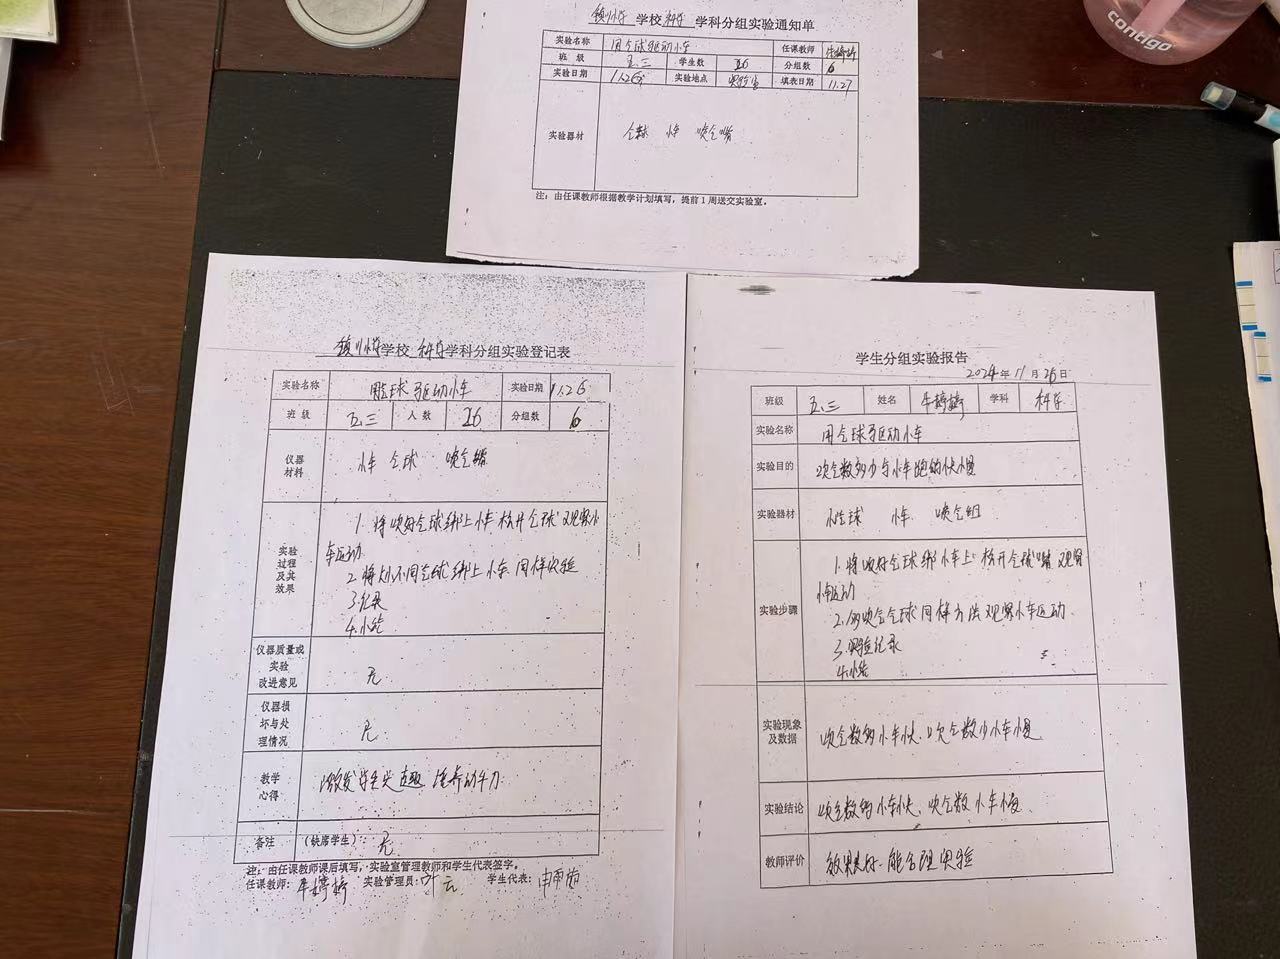 学校 科学 学科分组实验通知单
实验名称 用气球驱动小车 任课教师 牛婷婷
班 级 五.三 学生数 36 分组数 6
实验日期 11.26 实验地点 实验室 填表日期 11.27
实验器材 气球 小车 喷气嘴
注：由任课教师根据教学计划填写，提前1周送交实验室。
学校 科学 学科分组实验登记表
实验名称 用气球驱动小车 实验日期 11.26
班 级 五.三 人 数 36 分组数 6
仪器
材料
小车 气球 喷气嘴
实验
过程
及其
效果
1. 将吹好气球绑上小车 松开气球 观察小
车运动
2. 将大小不同气球绑上小车 同样实验
3.记录
4.小结
仪器质量或
实验
改进意见
无
仪器损
坏与处
理情况
无
教学
心得
激发学生兴趣 培养动手力
备注 （缺席学生）： 无
注：由任课教师课后填写，实验室管理教师和学生代表签字。
任课教师: 牛婷婷 实验管理员: 叶云 学生代表:
学生分组实验报告
2024年11月26日
班级 五.三 姓名 牛婷婷 学科 科学
实验名称 用气球驱动小车
实验目的 吹气数多少与小车跑的快慢
实验器材 气球 小车 喷气组
实验步骤
1. 将吹好气球绑小车上 松开气球嘴 观察
小车运动
2. 多吹气气球同样方法观察小车运动.
3.实验记录
4.小结
实验现象
及数据
吹气数多小车快. 吹气数少小车慢
实验结论 吹气数多小车快、吹气数 小车慢
教师评价 效果好. 能合理实验
contigo